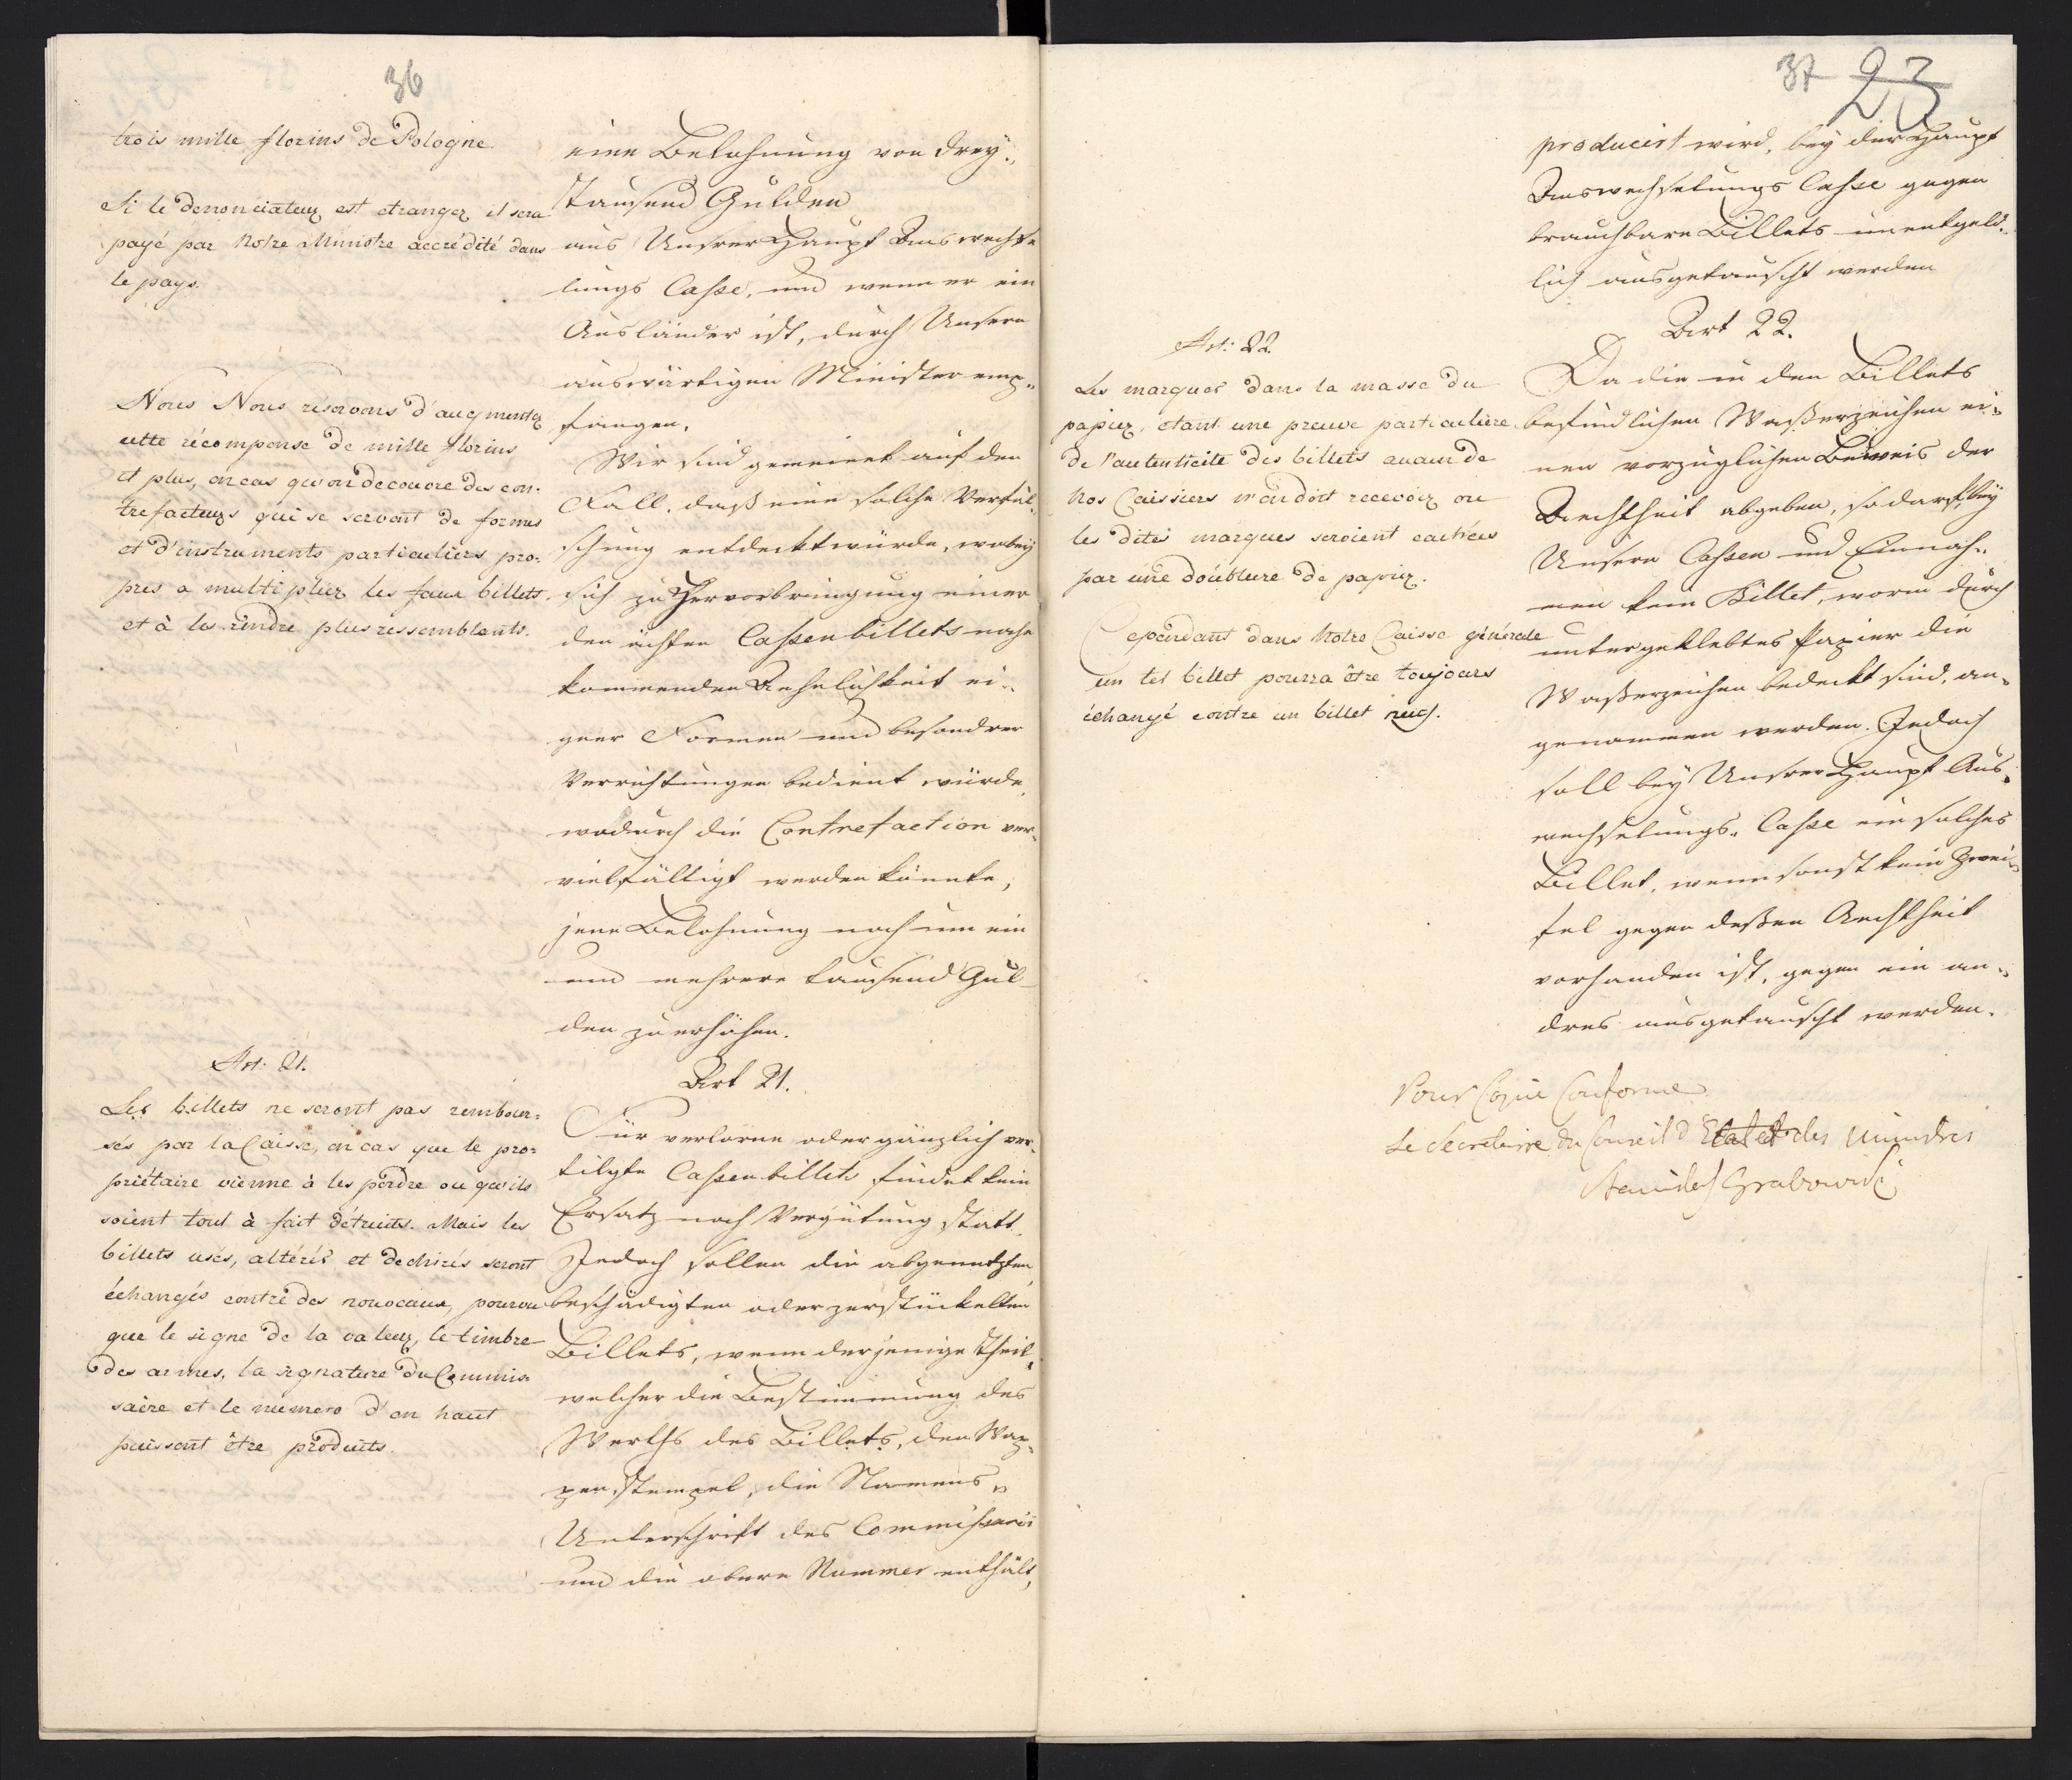 36
trois mille florins de Pologne
Si le denonciateur est etranger il sera
payé par Notre Ministre accrédité dans
le pays.
Nous Nous réservons d'augmenter
cette récompense de mille florins
et plus, en cas qu'on decouvre des con-
trefacteurs qui se servent de formes
et d'instruments particuliers pro-
pres a multiplier les faux billets
et à les rendre plus ressemblants.
Art: 21.
Les billets ne seront pas rembour-
sés par la Caisse, en cas que le pro-
priétaire vienne à les perdre ou qu'ils
soient tout à fait détruits. Mais les
billets usés, altérés et dechirés seront
échangés contre des nouveaux, pourvu
que le signe de la valeur, le timbre
des armes, la signature du Commis-
saire et le numero d'en haut
puissent être produits.
eine Belohnung von drey-
tausend Gulden
aus Unsrer Haupt Auswechse
lungs Casse, und wenn er ein
Ausländer ist, durch Unsern
auswärtigen Minister emp-
fangen.
Wir sind gemeinet auf den
Fall, daß eine solche Verfäl-
schung entdeckt würde, wobey
sich zu Hervorbringung einer
den ächten Cassenbillets nahe
kommenden Aehnlichkeit ei-
gner Formen und besondrer
Verrichtungen bedient würde,
wodurch die Contrefaction ver-
vielfältigt werden könnte,
jene Belohnung noch um ein
und mehrere tausend Gul-
den zu erhöhen.
Art 21.
Für verlorne oder gänzlich ver-
tilgte Cassenbillets findet kein
Ersatz noch Vergütung statt.
Jedoch sollen die abgenutzten
beschädigten oder zerstückelten
Billets, wenn derjenige Theil,
welcher die Bestimmung des
Werths des Billets, den Wap-
penstempel, die Namens-
Unterschrift des Commissarii
und die obere Nummer enthält,
37 23
Art: 22.
Les marques dans la masse du
papier, etant une preuve particuliere
de l'autenticité des billets aucun de
Nos Caissiers n'en doit recevoir ou
les dites marques seroient cachées
par une doublure de papier.
Cependant dans Notre Caisse générale
un tel billet pourra être toujours
échangé contre un billet neuf.
producirt wird, bey der Haupt
Auswechselungs Casse gegen
brauchbare Billets unentgeld-
lich ausgetauscht werden
Art 22.
Da die in den Billets
befindlichen Waßerzeichen ei-
nen vorzüglichen Beweis der
Aechtheit abgeben, so darf bey
Unsern Cassen und Einnah-
men kein Billet, worin durch
untergeklebtes Papier die
Waßerzeichen bedeckt sind, an-
genommen werden. Jedoch
soll bey Unsrer Haupt Aus-
wechselungs-Casse ein solches
Billet, wenn sonst kein Zwei-
fel gegen deßen Aechtheit
vorhanden ist, gegen ein an-
dres ausgetauscht werden.
Pour Copie Conforme
Le Secretaire du Conseil d'Etat et des Ministres
Stanislas Grabowski